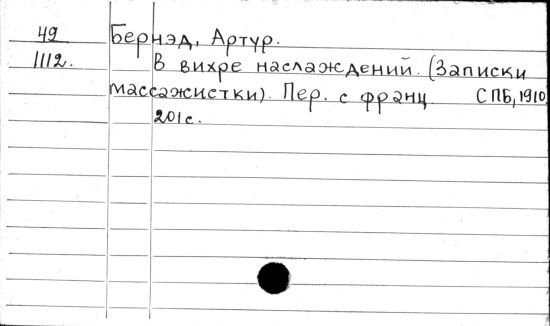 49 Бернэд, Артур.
1112. В вихре наслаждений. (Записки
массажистки). Пер. с франц. СПБ, 1910
201с.